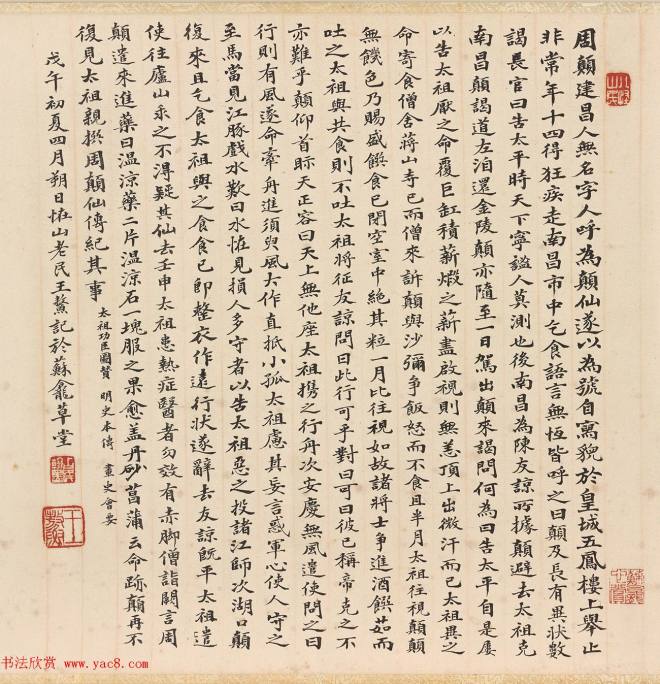 周顛建昌人無名字人呼為顛仙遂以為號自寫貌於皇城五鳳樓上舉止
非常年十四得狂疾走南昌市中乞食語言無恆皆呼之曰顛及長有異狀數
謁長官曰告太平時天下寧謐人莫測也後南昌為陳友諒所據顛避去太祖克
南昌顛謁道左洎還金陵顛亦隨至一日駕出顛來謁問何為曰告太平自是屢
以告太祖厭之命覆巨缸積薪煅之薪盡啟視則無恙頂上出微汗而已太祖異之
命寄食僧舍蔣山寺已而僧來訴顛與沙彌爭飯怒而不食且半月太祖往視顛顛
無饑色乃賜盛饌食已閉空室中絕其粒一月比往視如故諸將士爭進酒饌茹而
吐之太祖與共食則不吐太祖將征友諒問曰此行可乎對曰可曰彼已稱帝克之不
亦難乎顛仰首眎天正容曰天上無他座太祖携之行舟次安慶無風遣使問之曰
行則有風遂命牽舟進須臾風大作直抵小孤太祖慮其妄言惑軍心使人守之
至馬當見江豚戲水歎曰水怪見損人多守者以告太祖惡之投諸江師次湖口顛
復來且乞食太祖與之食食已即整衣作遠行狀遂辭去友諒既平太祖遣
使往廬山求之不得疑其仙去壬申太祖患熱症醫者勿效有赤脚僧詣闕言周
顛遣來進藥曰溫涼藥二片溫涼石一塊服之果愈盖丹砂菖蒲云命跡顛再不
復見太祖親撰周顛仙傳紀其事
太祖功臣圖贊 明史本傳 畫史會要
戊午初夏四月朔日恠山老民王蘩記於蘇龕草堂
书法欣赏 www.yac8.com